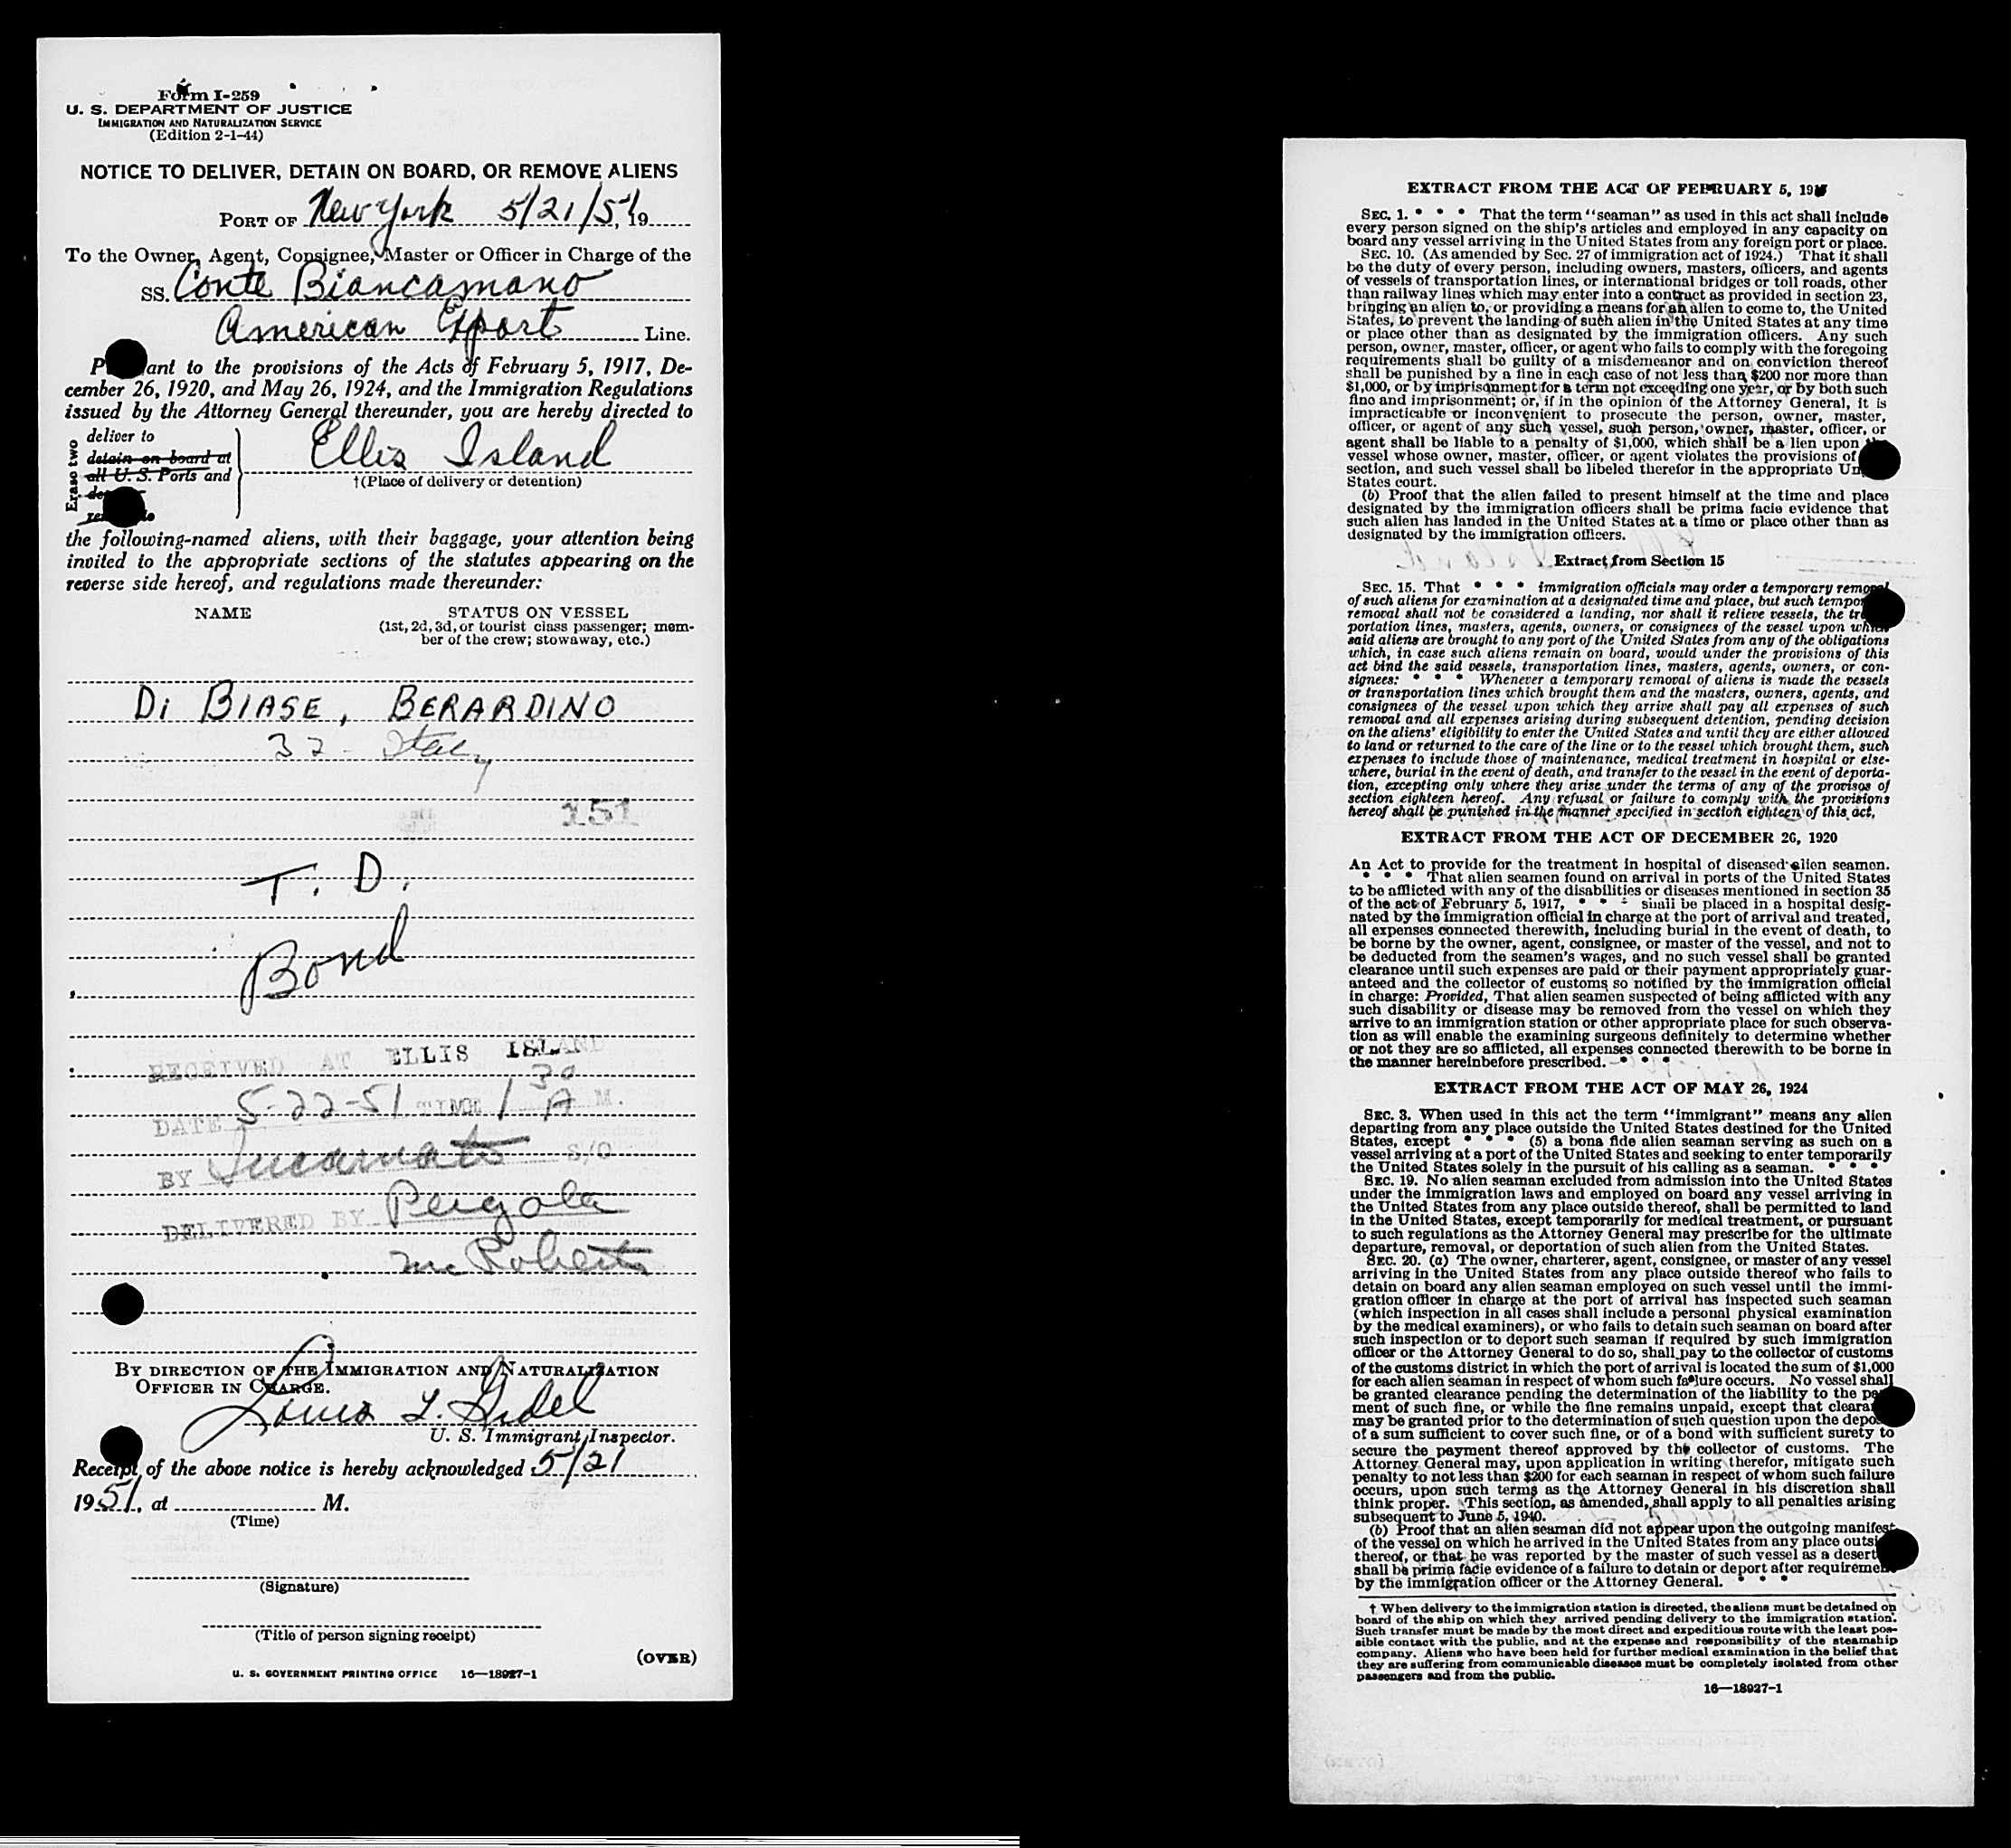 Form I-259
U. S. DEPARTMENT OF JUSTICE
IMMIGRATION AND NATURALIZATION SERVICE
(Edition 2-1-44)
NOTICE TO DELIVER, DETAIN ON BOARD, OR REMOVE ALIENS
PORT OF New York 5/21/51, 19
To the Owner, Agent, Consignee, Master or Officer in Charge of the
SS. Conte Biancamano
American Export Line.
P ant to the provisions of the Acts of February 5, 1917, De-
cember 26, 1920, and May 26, 1924, and the Immigration Regulations
issued by the Attorney General thereunder, you are hereby directed to
Erase two
deliver to
detain on board at
all U. S. Ports and
Ellis Island
†(Place of delivery or detention)
the following-named aliens, with their baggage, your attention being
invited to the appropriate sections of the statutes appearing on the
reverse side hereof, and regulations made thereunder:
NAME STATUS ON VESSEL
(1st, 2d, 3d, or tourist class passenger; mem-
ber of the crew; stowaway, etc.)
DI BIASE, BERARDINO
32 - Italy
151
T. D.
Bond
RECEIVED AT ELLIS ISLAND
DATE 5-22-51 TIME 1 30 A M.
BY S/O
DELIVERED BY Pergola
McRoberts
BY DIRECTION OF THE IMMIGRATION AND NATURALIZATION
OFFICER IN CHARGE.
Louis L.
U. S. Immigrant Inspector.
Receipt of the above notice is hereby acknowledged 5/21
1951, at M.
(Time)
(Signature)
(Title of person signing receipt)
(OVER)
U. S. GOVERNMENT PRINTING OFFICE 16—18927-1
EXTRACT FROM THE ACT OF FEBRUARY 5, 191
SEC. 1. * * * That the term "seaman" as used in this act shall include
every person signed on the ship's articles and employed in any capacity on
board any vessel arriving in the United States from any foreign port or place.
SEC. 10. (As amended by Sec. 27 of immigration act of 1924.) That it shall
be the duty of every person, including owners, masters, officers, and agents
of vessels of transportation lines, or international bridges or toll roads, other
than railway lines which may enter into a contract as provided in section 23,
bringing an alien to, or providing a means for an alien to come to, the United
States, to prevent the landing of such alien in the United States at any time
or place other than as designated by the immigration officers. Any such
person, owner, master, officer, or agent who fails to comply with the foregoing
requirements shall be guilty of a misdemeanor and on conviction thereof
shall be punished by a fine in each case of not less than $200 nor more than
$1,000, or by imprisonment for a term not exceeding one year, or by both such
fine and imprisonment; or, if in the opinion of the Attorney General, it is
impracticable or inconvenient to prosecute the person, owner, master,
officer, or agent of any such vessel, such person, owner, master, officer, or
agent shall be liable to a penalty of $1,000, which shall be a lien upon
vessel whose owner, master, officer, or agent violates the provisions of
section, and such vessel shall be libeled therefor in the appropriate Un
States court.
(b) Proof that the alien failed to present himself at the time and place
designated by the immigration officers shall be prima facie evidence that
such alien has landed in the United States at a time or place other than as
designated by the immigration officers.
Extract from Section 15
SEC. 15. That * * * immigration officials may order a temporary removal
of such aliens for examination at a designated time and place, but such tempor
removal shall not be considered a landing, nor shall it relieve vessels, the tr
portation lines, masters, agents, owners, or consignees of the vessel upon which
said aliens are brought to any port of the United States from any of the obligations
which, in case such aliens remain on board, would under the provisions of this
act bind the said vessels, transportation lines, masters, agents, owners, or con-
signees: * * * Whenever a temporary removal of aliens is made the vessels
or transportation lines which brought them and the masters, owners, agents, and
consignees of the vessel upon which they arrive shall pay all expenses of such
removal and all expenses arising during subsequent detention, pending decision
on the aliens' eligibility to enter the United States and until they are either allowed
to land or returned to the care of the line or to the vessel which brought them, such
expenses to include those of maintenance, medical treatment in hospital or else-
where, burial in the event of death, and transfer to the vessel in the event of deporta-
tion, excepting only where they arise under the terms of any of the provisos of
section eighteen hereof. Any refusal or failure to comply with the provisions
hereof shall be punished in the manner specified in section eighteen of this act.
EXTRACT FROM THE ACT OF DECEMBER 26, 1920
An Act to provide for the treatment in hospital of diseased alien seamen.
* * * That alien seamen found on arrival in ports of the United States
to be afflicted with any of the disabilities or diseases mentioned in section 35
of the act of February 5, 1917, * * * shall be placed in a hospital desig-
nated by the immigration official in charge at the port of arrival and treated,
all expenses connected therewith, including burial in the event of death, to
be borne by the owner, agent, consignee, or master of the vessel, and not to
be deducted from the seamen's wages, and no such vessel shall be granted
clearance until such expenses are paid or their payment appropriately guar-
anteed and the collector of customs so notified by the immigration official
in charge: Provided, That alien seamen suspected of being afflicted with any
such disability or disease may be removed from the vessel on which they
arrive to an immigration station or other appropriate place for such observa-
tion as will enable the examining surgeons definitely to determine whether
or not they are so afflicted, all expenses connected therewith to be borne in
the manner hereinbefore prescribed. * * *
EXTRACT FROM THE ACT OF MAY 26, 1924
SEC. 3. When used in this act the term "immigrant" means any alien
departing from any place outside the United States destined for the United
States, except * * * (5) a bona fide alien seaman serving as such on a
vessel arriving at a port of the United States and seeking to enter temporarily
the United States solely in the pursuit of his calling as a seaman. * * *
SEC. 19. No alien seaman excluded from admission into the United States
under the immigration laws and employed on board any vessel arriving in
the United States from any place outside thereof, shall be permitted to land
in the United States, except temporarily for medical treatment, or pursuant
to such regulations as the Attorney General may prescribe for the ultimate
departure, removal, or deportation of such alien from the United States.
SEC. 20. (a) The owner, charterer, agent, consignee, or master of any vessel
arriving in the United States from any place outside thereof who fails to
detain on board any alien seaman employed on such vessel until the immi-
gration officer in charge at the port of arrival has inspected such seaman
(which inspection in all cases shall include a personal physical examination
by the medical examiners), or who fails to detain such seaman on board after
such inspection or to deport such seaman if required by such immigration
officer or the Attorney General to do so, shall pay to the collector of customs
of the customs district in which the port of arrival is located the sum of $1,000
for each alien seaman in respect of whom such failure occurs. No vessel shall
be granted clearance pending the determination of the liability to the pa
ment of such fine, or while the fine remains unpaid, except that cleara
may be granted prior to the determination of such question upon the depos
of a sum sufficient to cover such fine, or of a bond with sufficient surety to
secure the payment thereof approved by the collector of customs. The
Attorney General may, upon application in writing therefor, mitigate such
penalty to not less than $200 for each seaman in respect of whom such failure
occurs, upon such terms as the Attorney General in his discretion shall
think proper. This section, as amended, shall apply to all penalties arising
subsequent to June 5, 1940.
(b) Proof that an alien seaman did not appear upon the outgoing manifest
of the vessel on which he arrived in the United States from any place outsi
thereof, or that he was reported by the master of such vessel as a desert
shall be prima facie evidence of a failure to detain or deport after requirement
by the immigration officer or the Attorney General. * * *
† When delivery to the immigration station is directed, the aliens must be detained on
board of the ship on which they arrived pending delivery to the immigration station.
Such transfer must be made by the most direct and expeditious route with the least pos-
sible contact with the public, and at the expense and responsibility of the steamship
company. Aliens who have been held for further medical examination in the belief that
they are suffering from communicable diseases must be completely isolated from other
passengers and from the public.
16—18927-1